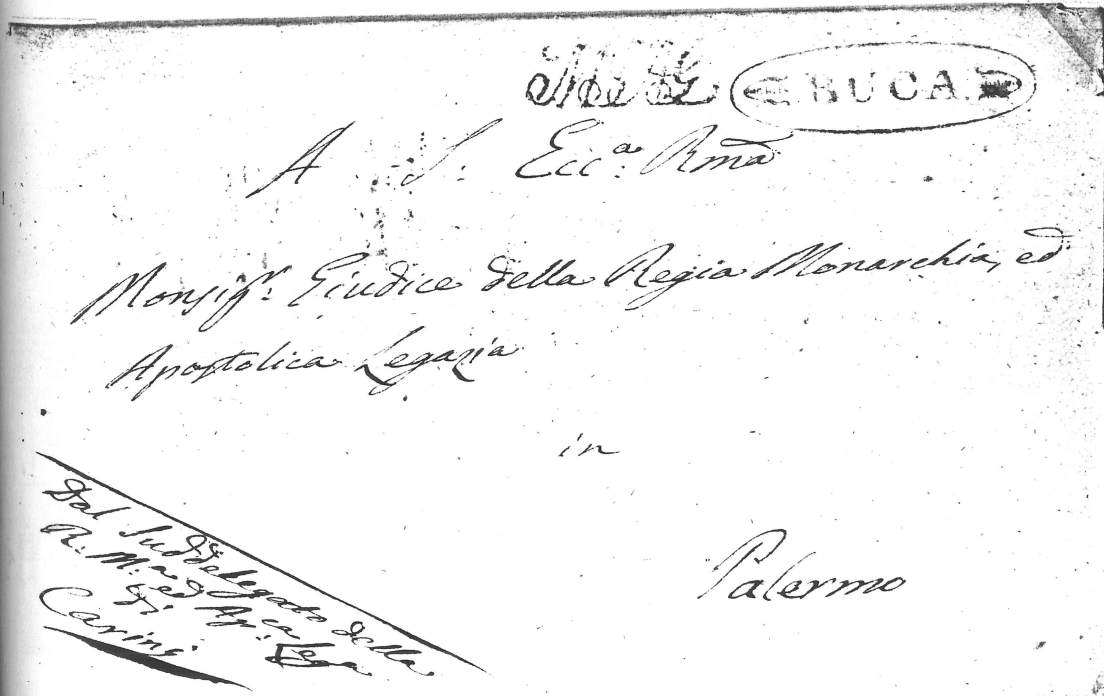 BUCA
A S: Ecc.ª Rma
Monsigr: Giudice della Regia Monarchia, ed
Apostolica Legazia
in
Palermo
Dal Suddelegato della
R. M.ª ed Ap.ca Lega
di
Carini